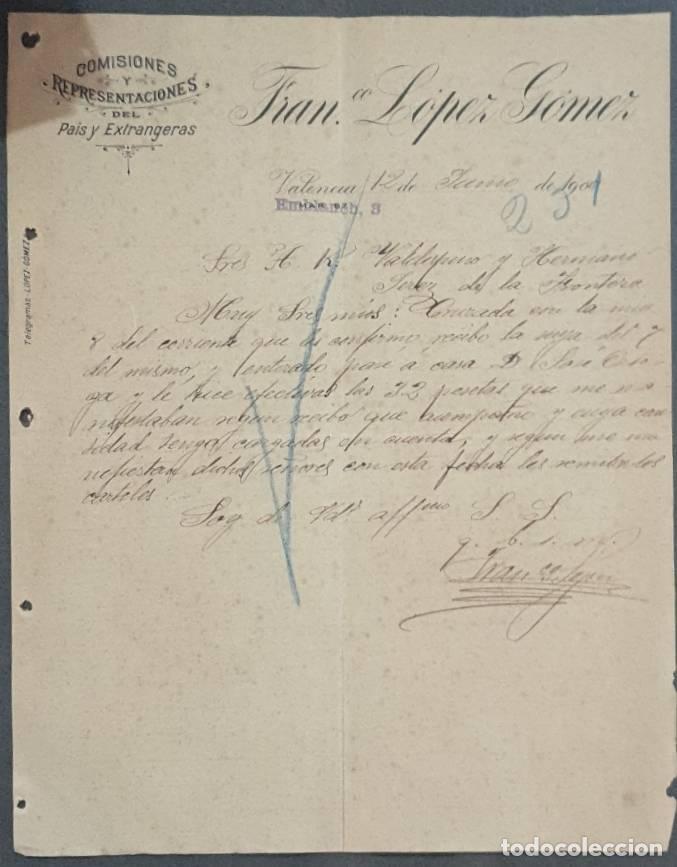 COMISIONES
Y
REPRESENTACIONES
DEL
País y Extrangeras
Fran.co López Gómez
Valencia 12 de Junio de 1901
Embañ, 3
231
Telegramas: LOPEZ GOMEZ
Sres A. R. Valdespino y Hermano
Jerez de la Frontera
Muy Sres mios: Cruzada con la mia
8 del corriente que os confirmo, recibo la suya del 7
del mismo, y enterado pasé á casa D
y le hice efectivas las 32 pesetas que me ma-
nifestaban segun recibo que acompaño y cuya can-
tidad tengo cargadas en cuenta, y segun me ma-
nifiestan dichos señores con esta fecha les remiten los
carteles.
Soy de Vds affmo S. S.
q. b. s. m.
Franco Lopez
todocoleccion.net